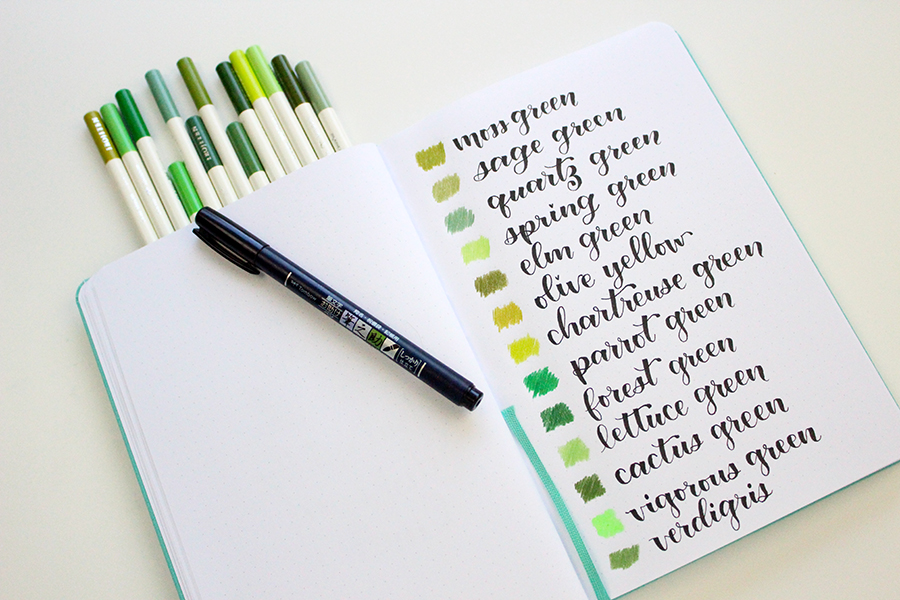 moss green
sage green
quartz green
spring green
elm green
olive yellow
chartreuse green
parrot green
forest green
lettuce green
cactus green
vigorous green
verdigris